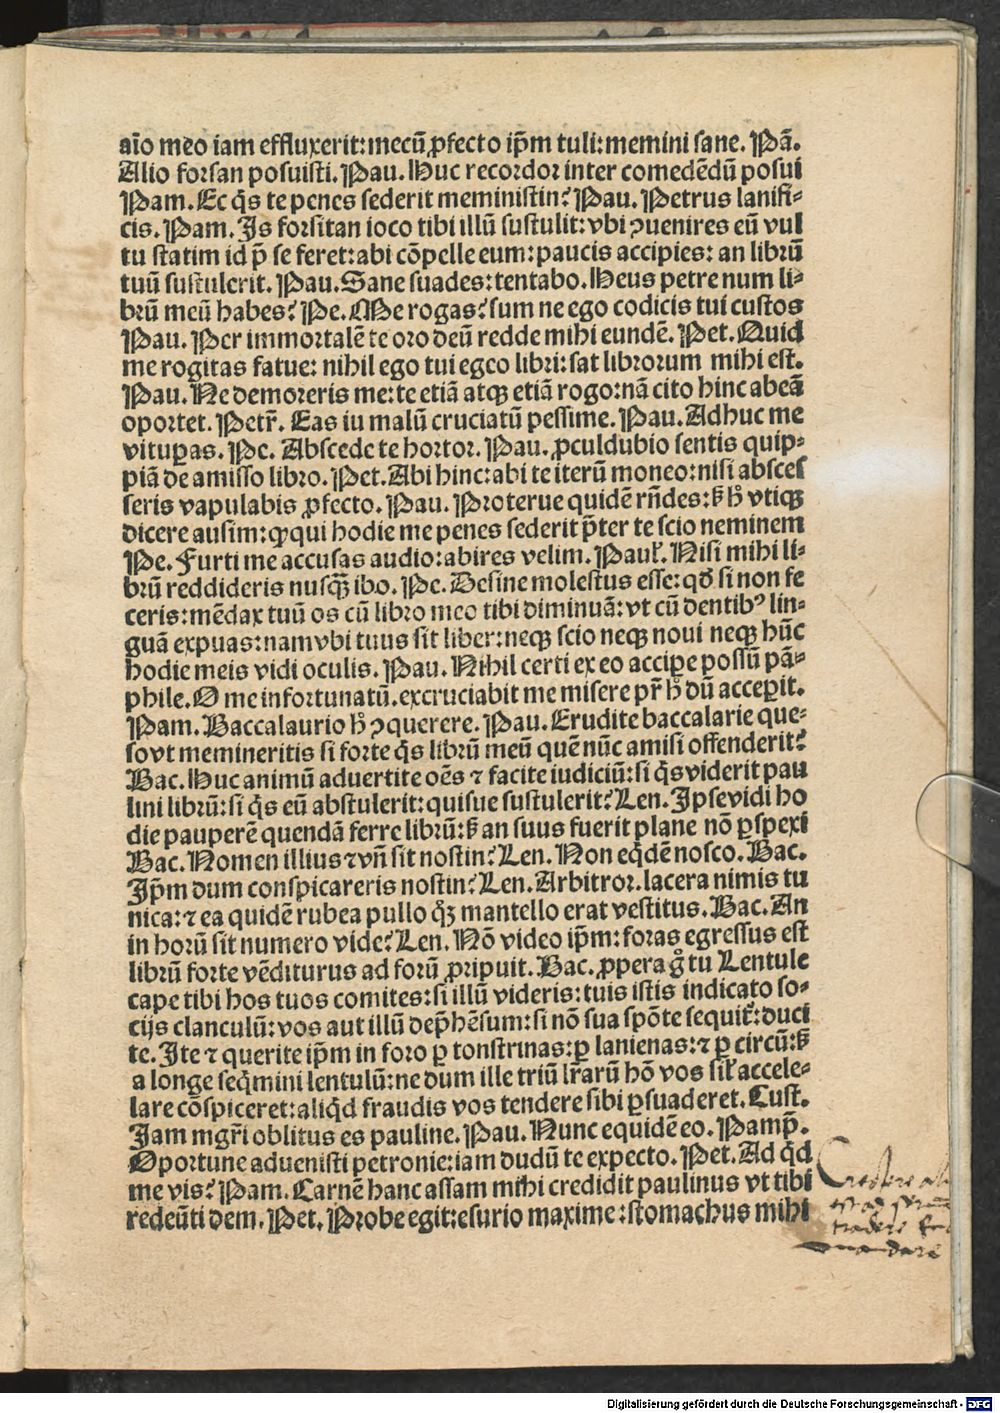 aīo meo iam effluxerit: mecū ꝓfecto ip̄m tuli: memini sane. Pā.
Alio forsan posuisti. Pau. Huc recordor inter comedēdū posui
Pam. Ec q̄s te penes sederit meministin? Pau. Petrus lanifi-
cis. Pam. Is forsitan ioco tibi illū sustulit: vbi ꝯuenires eū vul
tu statim id p̄ se feret: abi cōpelle eum: paucis accipies: an librū
tuū sustulerit. Pau. Sane suades: tentabo. Heus petre num li-
brū meū habes? Pe. Me rogas? sum ne ego codicis tui custos
Pau. Per immortalē te oro deū redde mihi eundē. Pet. Quid
me rogitas fatue: nihil ego tui egeo libri: sat librorum mihi est.
Pau. Ne demoreris me: te etiā atqꝫ etiā rogo: nā cito hinc abeā
oportet. Petr̄. Eas iu malū cruciatū pessime. Pau. Adhuc me
vituꝑas. Pe. Abscede te hortor. Pau. ꝓculdubio sentis quip-
piā de amisso libro. Pet. Abi hinc: abi te iterū moneo: nisi absces
seris vapulabis ꝓfecto. Pau. Proterue quidē rn̄des: ꝫ hͦ vtiqꝫ
dicere ausim: ꝙ qui hodie me penes sederit p̄ter te scio neminem
Pe. Furti me accusas audio: abires velim. Paul'. Nisi mihi li-
brū reddideris nusꝗ̄ ibo. Pe. Desine molestus esse: qd̄ si non fe
ceris: mēdax tuū os cū libro meo tibi diminuā: vt cū dentibꝰ lin-
guā expuas: nam vbi tuus sit liber: neqꝫ scio neqꝫ noui neqꝫ hūc
hodie meis vidi oculis. Pau. Nihil certi ex eo acciꝑe possū pā-
phile. O me infortunatū. excruciabit me misere pr̄ hͦ dū acceꝑit.
Pam. Baccalaurio hͦ ꝯquerere. Pau. Erudite baccalarie que-
so vt memineritis si forte q̄s librū meū quē nūc amisi offenderit?
Bac. Huc animū aduertite oēs ⁊ facite iudiciū: si q̄s viderit pau
lini librū: si q̄s eū abstulerit: quisue sustulerit? Len. Ipse vidi ho
die pauperē quendā ferre librū: ꝫ an suus fuerit plane nō ꝑspexi
Bac. Nomen illius ⁊ vn̄ sit nostin? Len. Non eq̄dē nosco. Bac.
Ip̄m dum conspicareris nostin? Len. Arbitror. lacera nimis tu
nica: ⁊ ea quidē rubea pullo q̄ꝫ mantello erat vestitus. Bac. An
in horū sit numero vide? Len. Nō video ip̄m: foras egressus est
librū forte vēditurus ad forū ꝓripuit. Bac. ꝓpera gͦ tu Lentule
cape tibi hos tuos comites: si illū videris: tuis istis indicato so-
cijs clanculū: vos aut illū dep̄hēsum: si nō sua spōte sequit᷑: duci
te. Ite ⁊ querite ip̄m in foro ꝑ tonstrinas: ꝑ lanienas: ⁊ ꝑ circū: ꝫ
a longe seq̄mini lentulū: ne dum ille triū lr̄arū hō vos sil' accele-
lare cōspiceret: aliq̄d fraudis vos tendere sibi ꝑsuaderet. Cust.
Iam mgr̄i oblitus es pauline. Pau. Nunc equidē eo. Pamp̄.
Oportune aduenisti petronie: iam dudū te expecto. Pet. Ad q̄d
me vis? Pam. Carnē hanc assam mihi credidit paulinus vt tibi
redeūti dem. Pet. Probe egit: esurio maxime: stomachus mihi
Credere
tradere
mandare
Digitalisierung gefördert durch die Deutsche Forschungsgemeinschaft - DFG